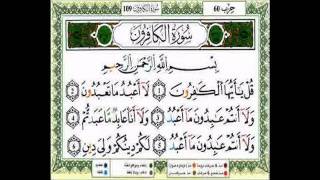 حزب 60
سُورَةُ الكَافِرُونَ
109
بِسْمِ اللَّهِ الرَّحْمَٰنِ الرَّحِيمِ
قُلْ يَا أَيُّهَا الْكَافِرُونَ 1 لَا أَعْبُدُ مَا تَعْبُدُونَ 2
وَلَا أَنتُمْ عَابِدُونَ مَا أَعْبُدُ 3 وَلَا أَنَا عَابِدٌ مَّا عَبَدتُّمْ 4
وَلَا أَنتُمْ عَابِدُونَ مَا أَعْبُدُ 5 لَكُمْ دِينُكُمْ وَلِيَ دِينِ 6